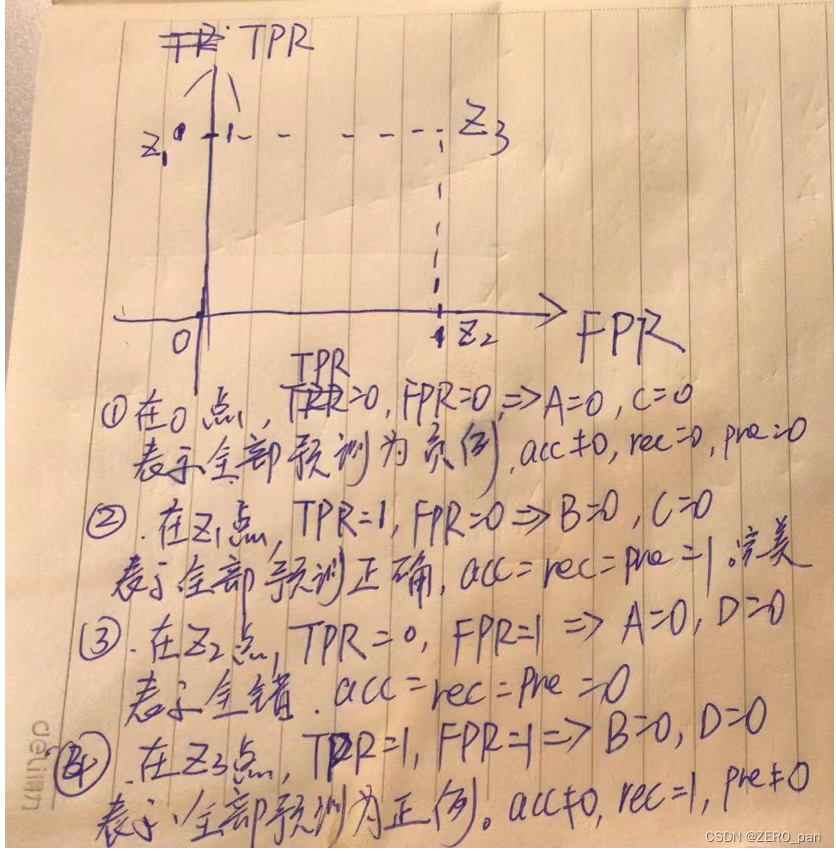 TPR
Z₁ 1 Z₃
0 1 Z₂ FPR
TPR
① 在0点, TPR=0, FPR=0, => A=0, C=0
表示全部预测为负例, acc≠0, rec=0, pre=0
②. 在Z₁点, TPR=1, FPR=0 => B=0, C=0
表示全部预测正确, acc=rec=pre=1。完美
③. 在Z₂点, TPR=0, FPR=1 => A=0, D=0
表示全错. acc=rec=pre=0
④. 在Z₃点, TPR=1, FPR=1 => B=0, D=0
表示全部预测为正例。acc≠0, rec=1, pre≠0
deli得力
CSDN @ZERO_pan